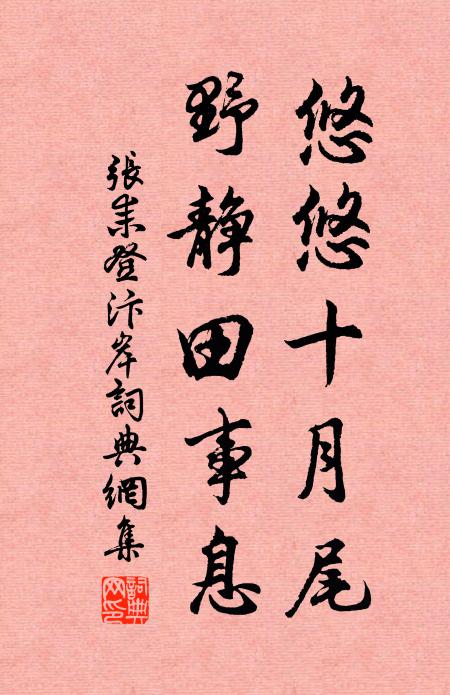 悠悠十月尾
野靜田事息
張耒登汴岸詞典網集
詞典网印